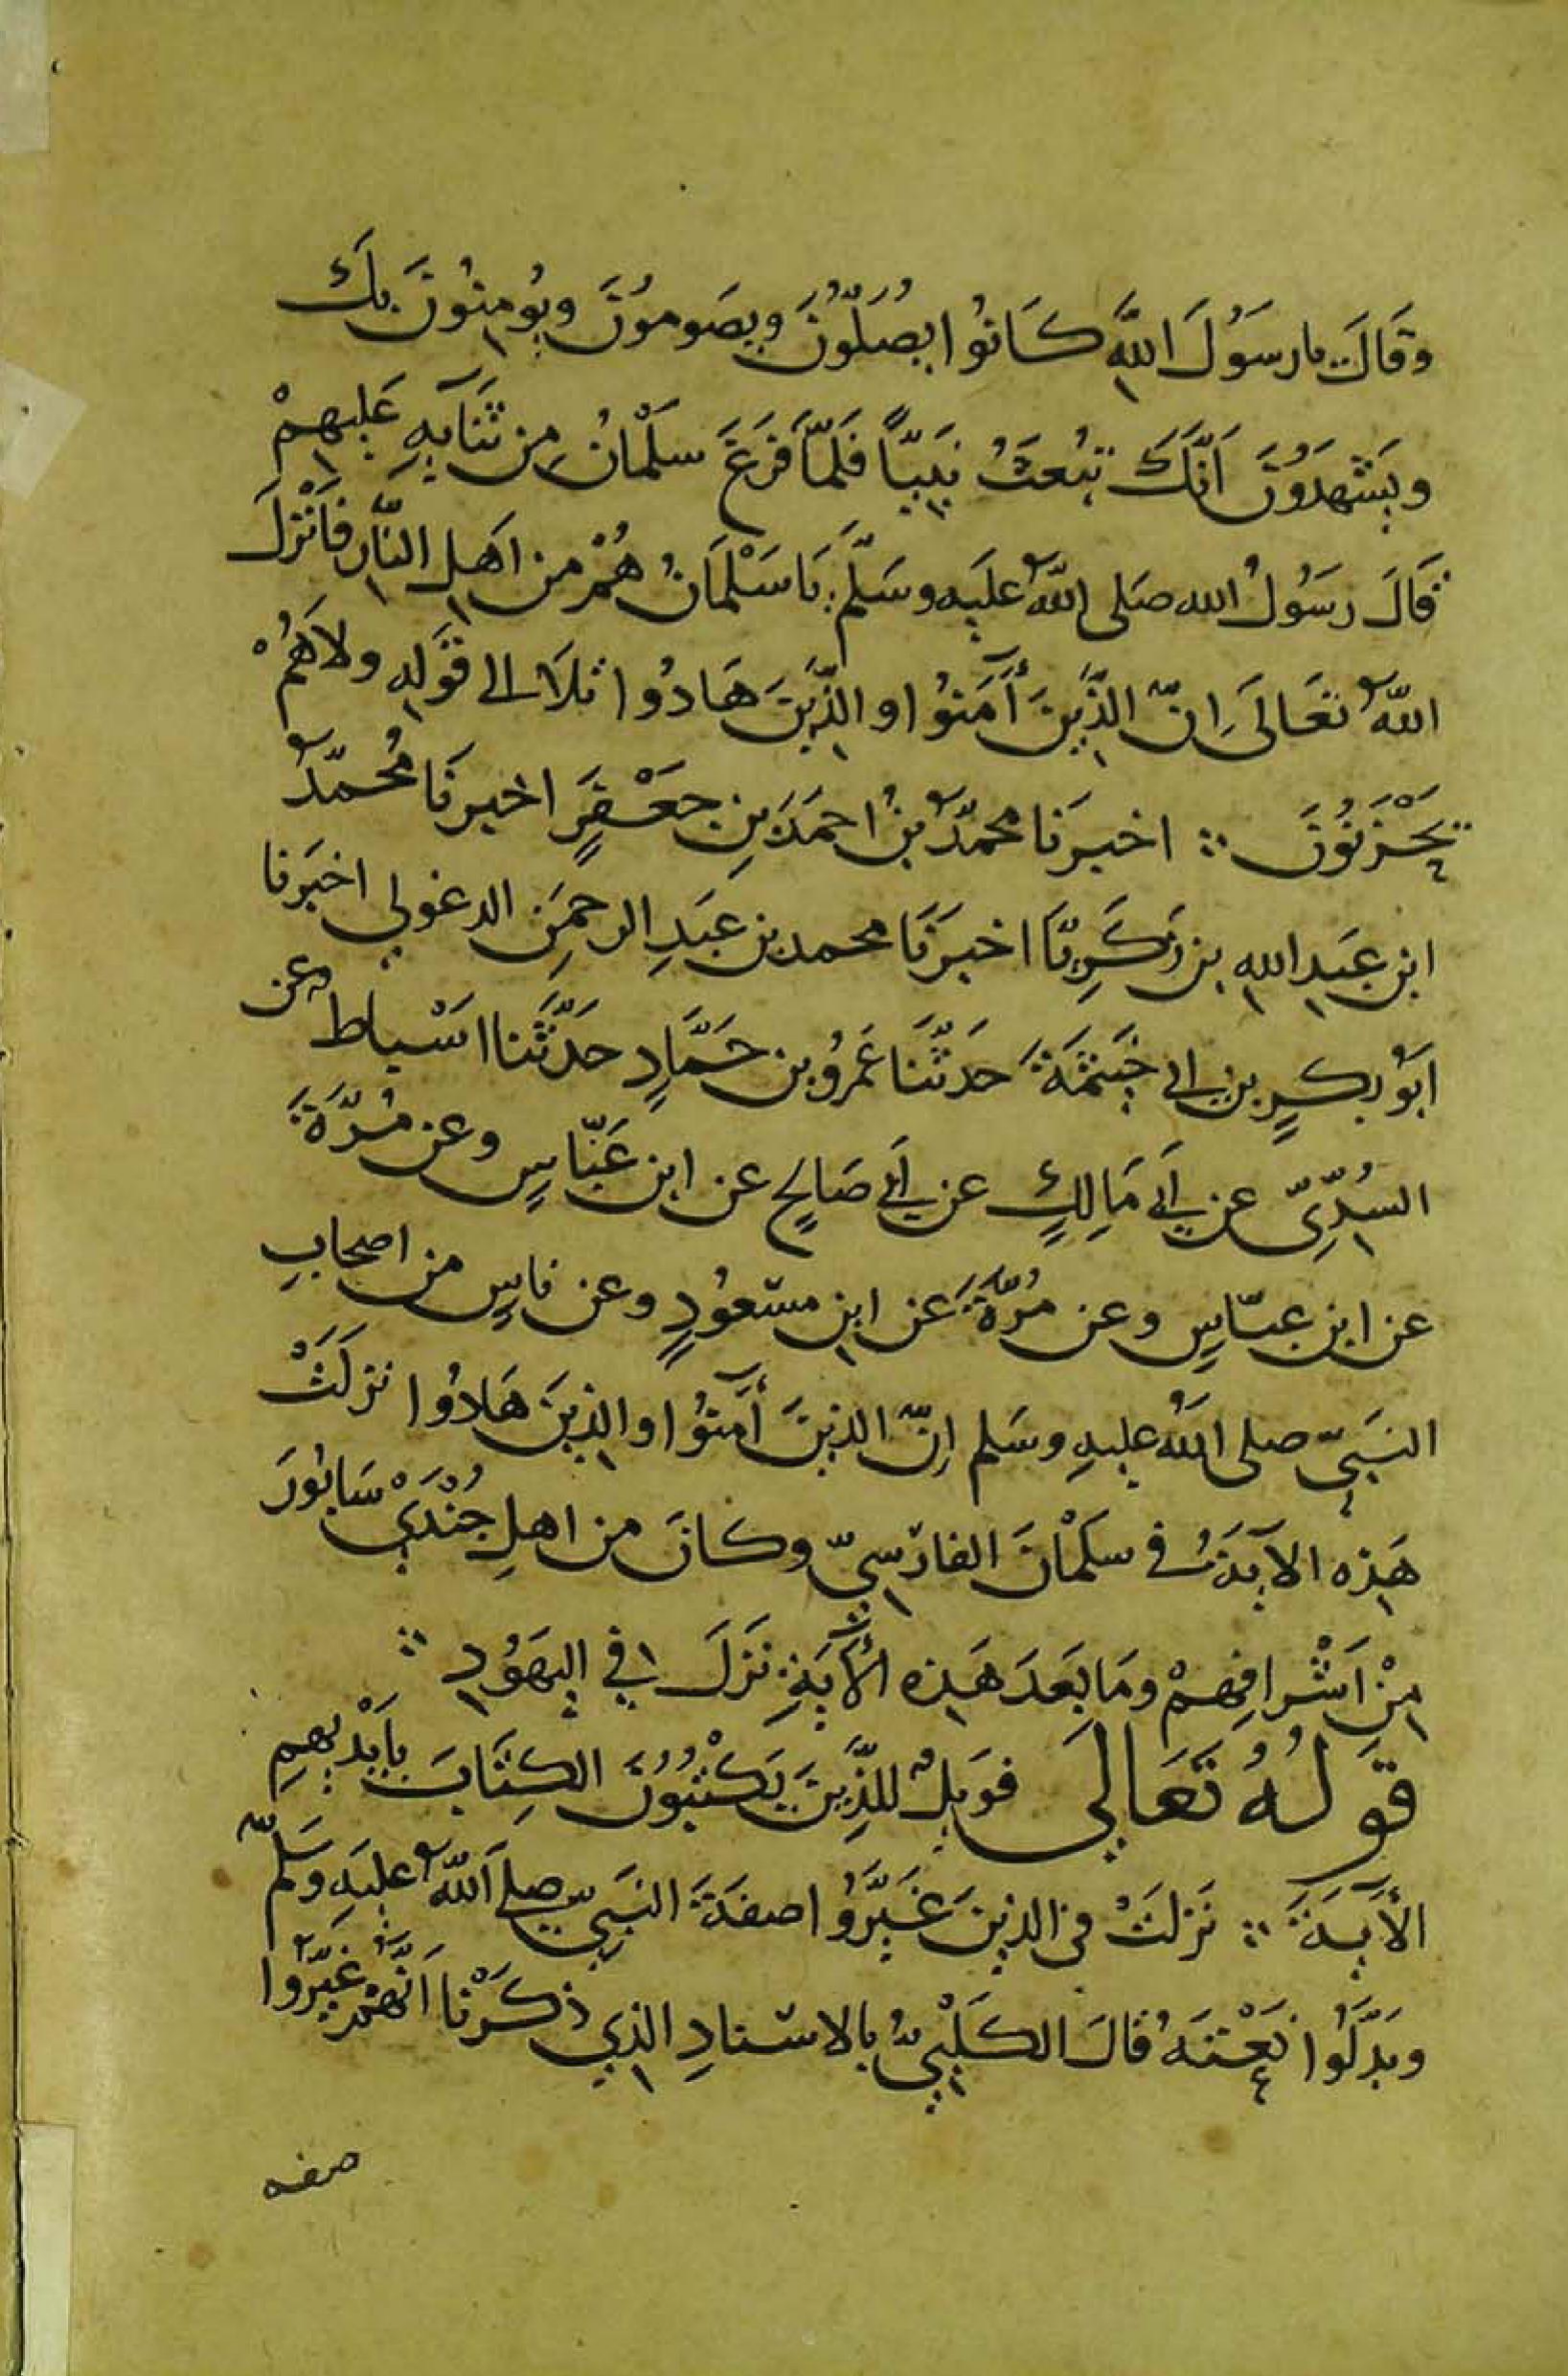 وقَالَ يا رسَوُلَ اللَّهِ كَانوُا يصُلّوُنَ ويصَومُونَ ويوُمنِوُنَ بِكَ
ويَشْهدَوُنَ اَنَّكَ تبُعَثُ نَبيّاً فَلَمَّا فَرَغَ سَلْمانُ مِن ثَنَآيِهِ عَليهِمْ
قَالَ رسَوُلُ الله صَلى اللَّهُ علَيهِ وسَلَّمَ يَا سَلْمَانُ هُمْ من اَهلِ النَّارِ فاَنْزلَ
اللَّهُ تعَالَى اِنّ الذَّيِنَ أَمَنوُا والذَّيِنَ هَادوُا تلاَ الى قَولِهِ ولاَ هُمْ
يحَْزَنوُنَ ؞ اخبرنَا محمّدُ بنُ احمَدَ بنِ جعَْفرٍ اخبرنَا مُحمّدُ
ابن عَبدِ اللهِ بن زَكَرِيّا اخبرَنَا محمد بن عَبدِ الرحمَنِ الدغولي اخبَرنا
اَبوُ بكرٍ بن ابى خَيثمَةَ حَدثّنَا عَمروُ بن حَمَّادٍ حَدَّثَنا اَسْباط عن
السُدِّىّ عن اَبى مَالِكٍ عن اَبى صَالحٍ عن ابن عَبَّاسٍ وعن مُرَّةَ
عن ابن عبّاسٍ وعن مُرَّةَ عَن ابنِ مسْعوُدٍ وعن ناسٍ من اصحابِ
النَبيّ صلى اللَّهُ عليهِ وسَلم اِنّ الذينَ أَمنوُا والذِينَ هَادوُا نزلَتْ
هَذِه الآيَةُ فى سَلْمانَ الفارسِيّ وكانَ من اهلِ جُنْدَيْ سَابوُرَ
مِنْ اَشْرافِهِمْ ومَا بعَدَ هَذِه الأيَةِ نَزلَ في اليهَوُدِ ؞
قَولهُُ تَعَالىَ فوَيلٌ للذِّينَ يَكْتبُوُنَ الكِتَابَ باَيْديهِمِ
الأَيَةَ ؞ نَزلتْ فى الذِينَ غَيَّروُا صفَةَ النَبيّ صلى اَللَّهُ عليَهِ وسَلَّم
وبَدَّلَوُا نَعْتَهُ قالَ الكَلْبِيُّ بالاسْنادِ الذِي ذكَرْنا اَنَّهُمْ غيَّروا
صفه